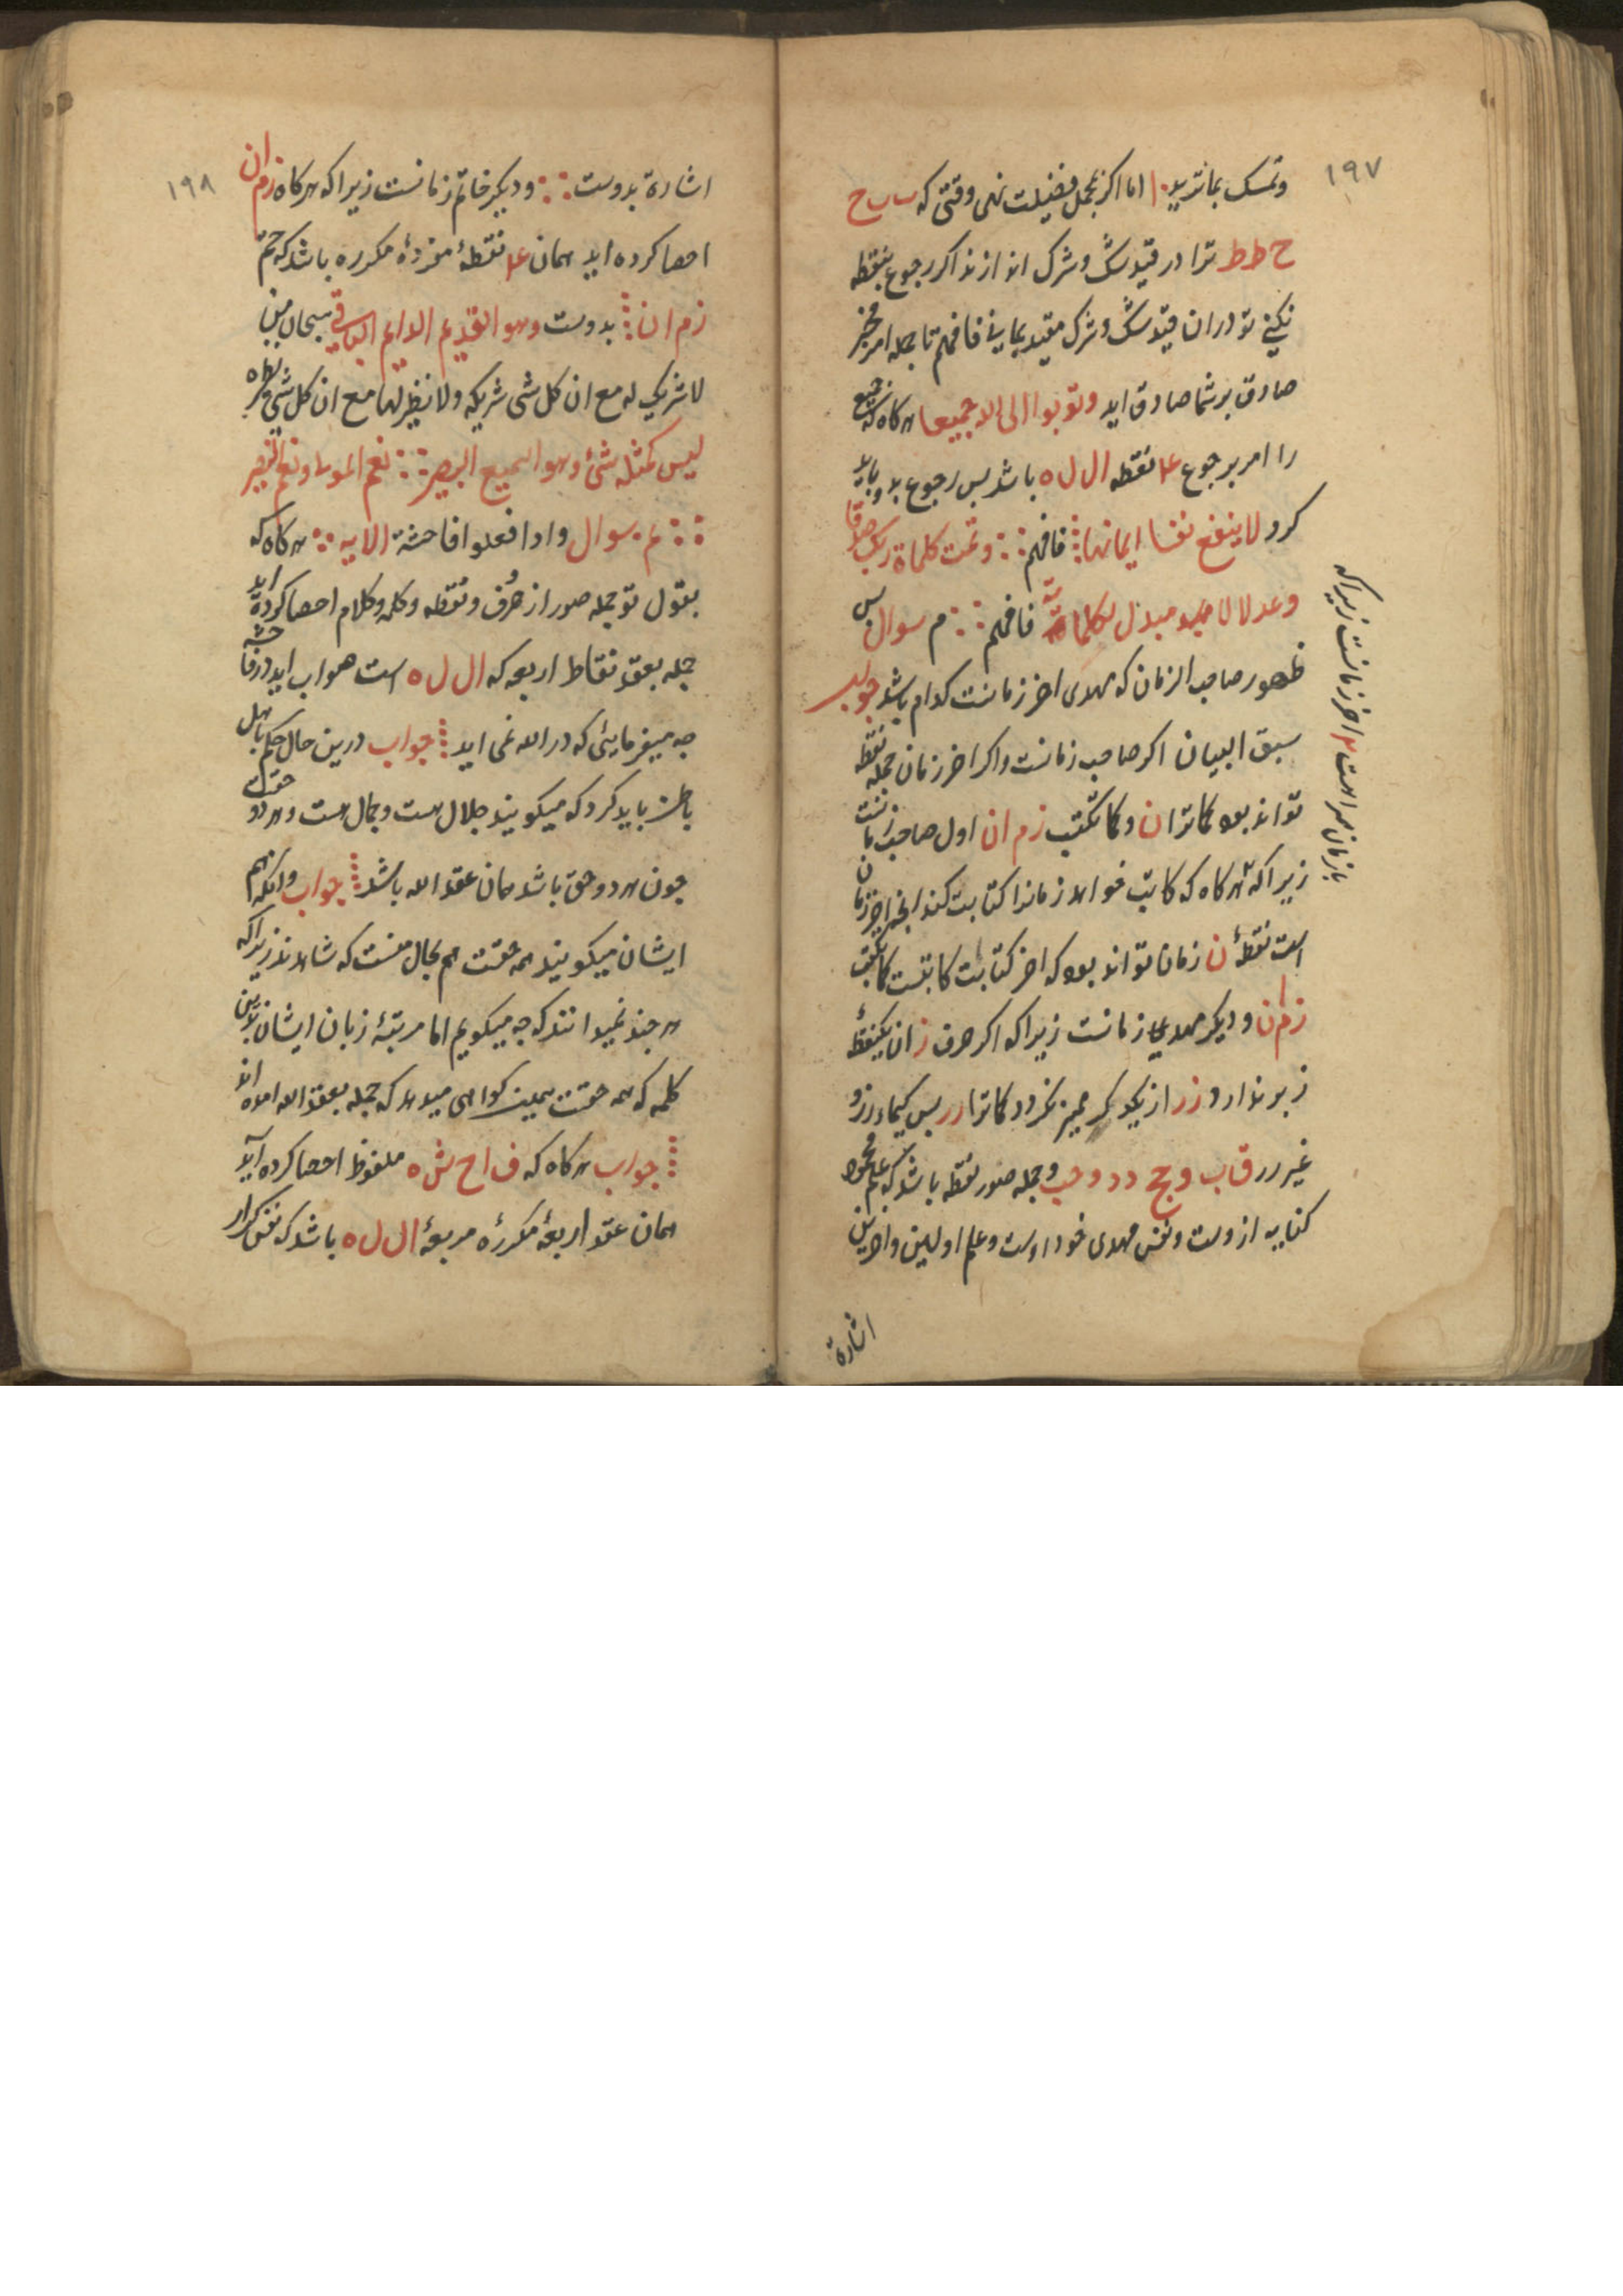 ۱۹۷
وتمسک بمانرید اما اکر بمجمل فضیلت نهی وقتی که ب ب ح
ح ط ط ترا در قید شک و شرک اندازند اکر رجوع بنقطه
نکنی تو در ان قید شک و شرک مقید بمانی فافهم تا بجمله امر مخبر
صادق بر شما صادق اید وتوبوا الی الله جمیعا هرکاه که جمیع
را امر برجوع ۴ نقطه ال ل ه باشد بس رجوع بدو باید
کرد لاینفع نفسا ایمانها فافهم وتمت کلماة ربک صدقا
وعدلا لا مبدل لکلماته فافهم م سوال بس
ظهور صاحب الزمان که مهدی اخر زمانست کدام باشد جواب
سبق البیان اکر صاحب زمانست واکر اخر زمان جمله نقطه
تواند بود کماترا ن و کما تکتب زم ان اول صاحب زمانست
زیرا که هرکاه که کاتب خواهد زمانرا کتابت کند انچه اخر زمان
است نقطهٔ ن زمان تواند بود که اخر کتابت کاتبست کما تکتب
زم ان و دیکر مهدی زمانست زیرا که اکر حرف ز ان یکنقطهٔ
زبر ندارد ز ر از یکدیکر ممیز نکردد کماترا ر ر بس کیماء رزو
غیر رر ق اب و ج د د و حب و جمله صور نقطه باشد که علم
کنایه از وست ونفس مهدی خود اوست وعلم اولین واخرین
اشارة
بزمان مر است ۴ اخر زمانست زیراکه
۱۹۸
اشارة بدوست ودیکر خاتم زمانست زیرا که هرکاه زم ان
احصا کرده اید همان ۴ نقطهٔ مفردهٔ مکرره باشد که ختم
زم ان بدوست وهو القدیم الدایم الباقی سبحان من
لا شریک له مع ان کل شی شریکه ولا نظیر لها مع ان کل شی
لیس کمثله شئ وهو السمیع البصیر نعم المولی ونعم النصیر
م سوال واذا فعلوا فاحشة الایه هرکاه که
بقول تو جمله صور از حرف ونقطه وکلمه وکلام احصا کرده اید
جمله بعقد نقاط اربعه که ال ل ه است هو اب اید در فاحشه
جه میفرمایئی که در الله نمی اید جواب درین حال حکم باهل
باطن باید کرد که میکویند جلال هست وجمال هست وهر دو حق است
جون هر دو حق باشد همان عقد الله باشد جواب وانکه هم
ایشان میکویند همه حقست هم بحال منست که شاهدند زیرا که
هر جند نمیدانند که جه میکویم اما مرتبهٔ زبان ایشان بدین
کلمه که همه حقست همین کواهی میدهد که جمله بعقد الله امده اند
جواب هرکاه که ف اح ش ه ملفوظ احصا کرده آید
همان عقد اربعهٔ مکررهٔ مربعهٔ ال ل ه باشد که نفس کرار